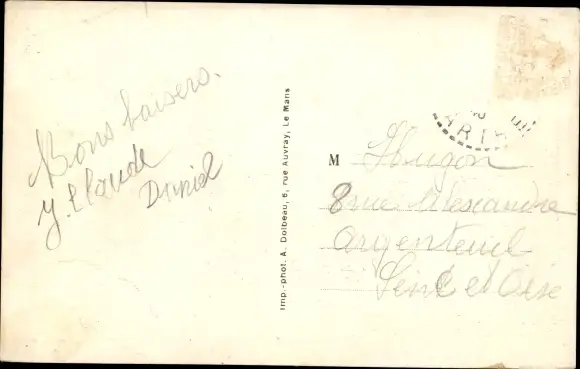 Bons baisers.
J. Claude
Daniel
Imp.-phot. A. Dolbeau, 6, rue Auvray, Le Mans
M Hugon
8 rue Alexandre
Argenteuil
Seine et Oise